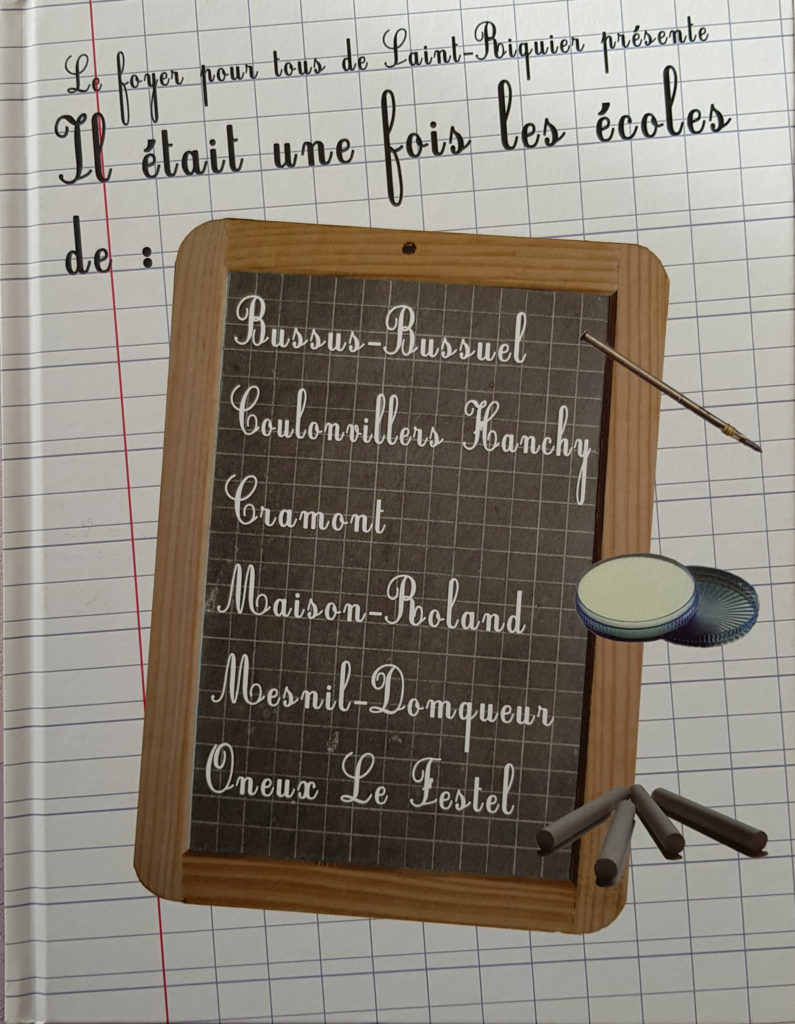 Le foyer pour tous de Saint-Riquier présente
Il était une fois les écoles
de :
Bussus-Bussuel
Coulonvillers Hanchy
Cramont
Maison-Roland
Mesnil-Domqueur
Oneux Le Festel